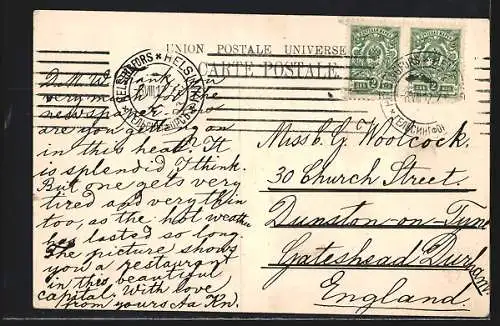 UNION POSTALE UNIVERSE
CARTE POSTALE
HELSINGFORS ✶ HELSINKI
VIII 12
2
2
D. M. W. Thank you
very much for the
newspaper. How
are you getting on
in this heat? It
is splendid I think.
But one gets very
tired and very thin
too, as the hot weather
has lasted so long.
The picture shows
you a restaurant
in this beautiful
capital. With love
from yours Aa Kn.
Miss C. G. Woolcock.
30 Church Street.
Dunston-on-Tyne
Gateshead Durham
England.